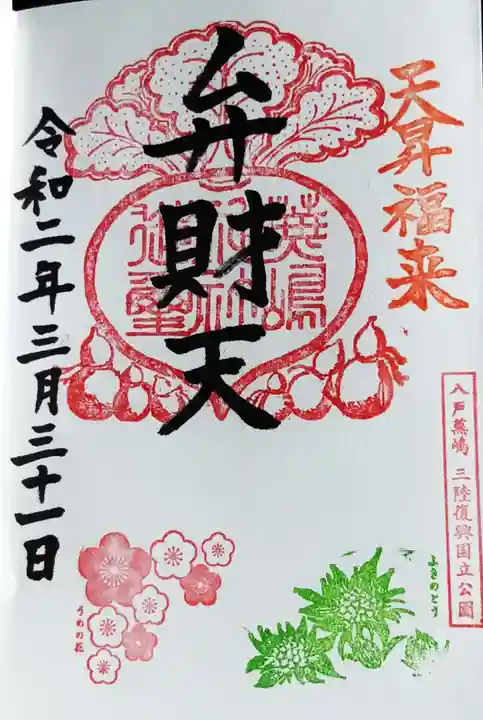 天昇福来
八戸蕪嶋 三陸復興国立公園
弁財天
蕪嶋神社御璽
令和二年三月三十一日
ふきのとう
うめの花